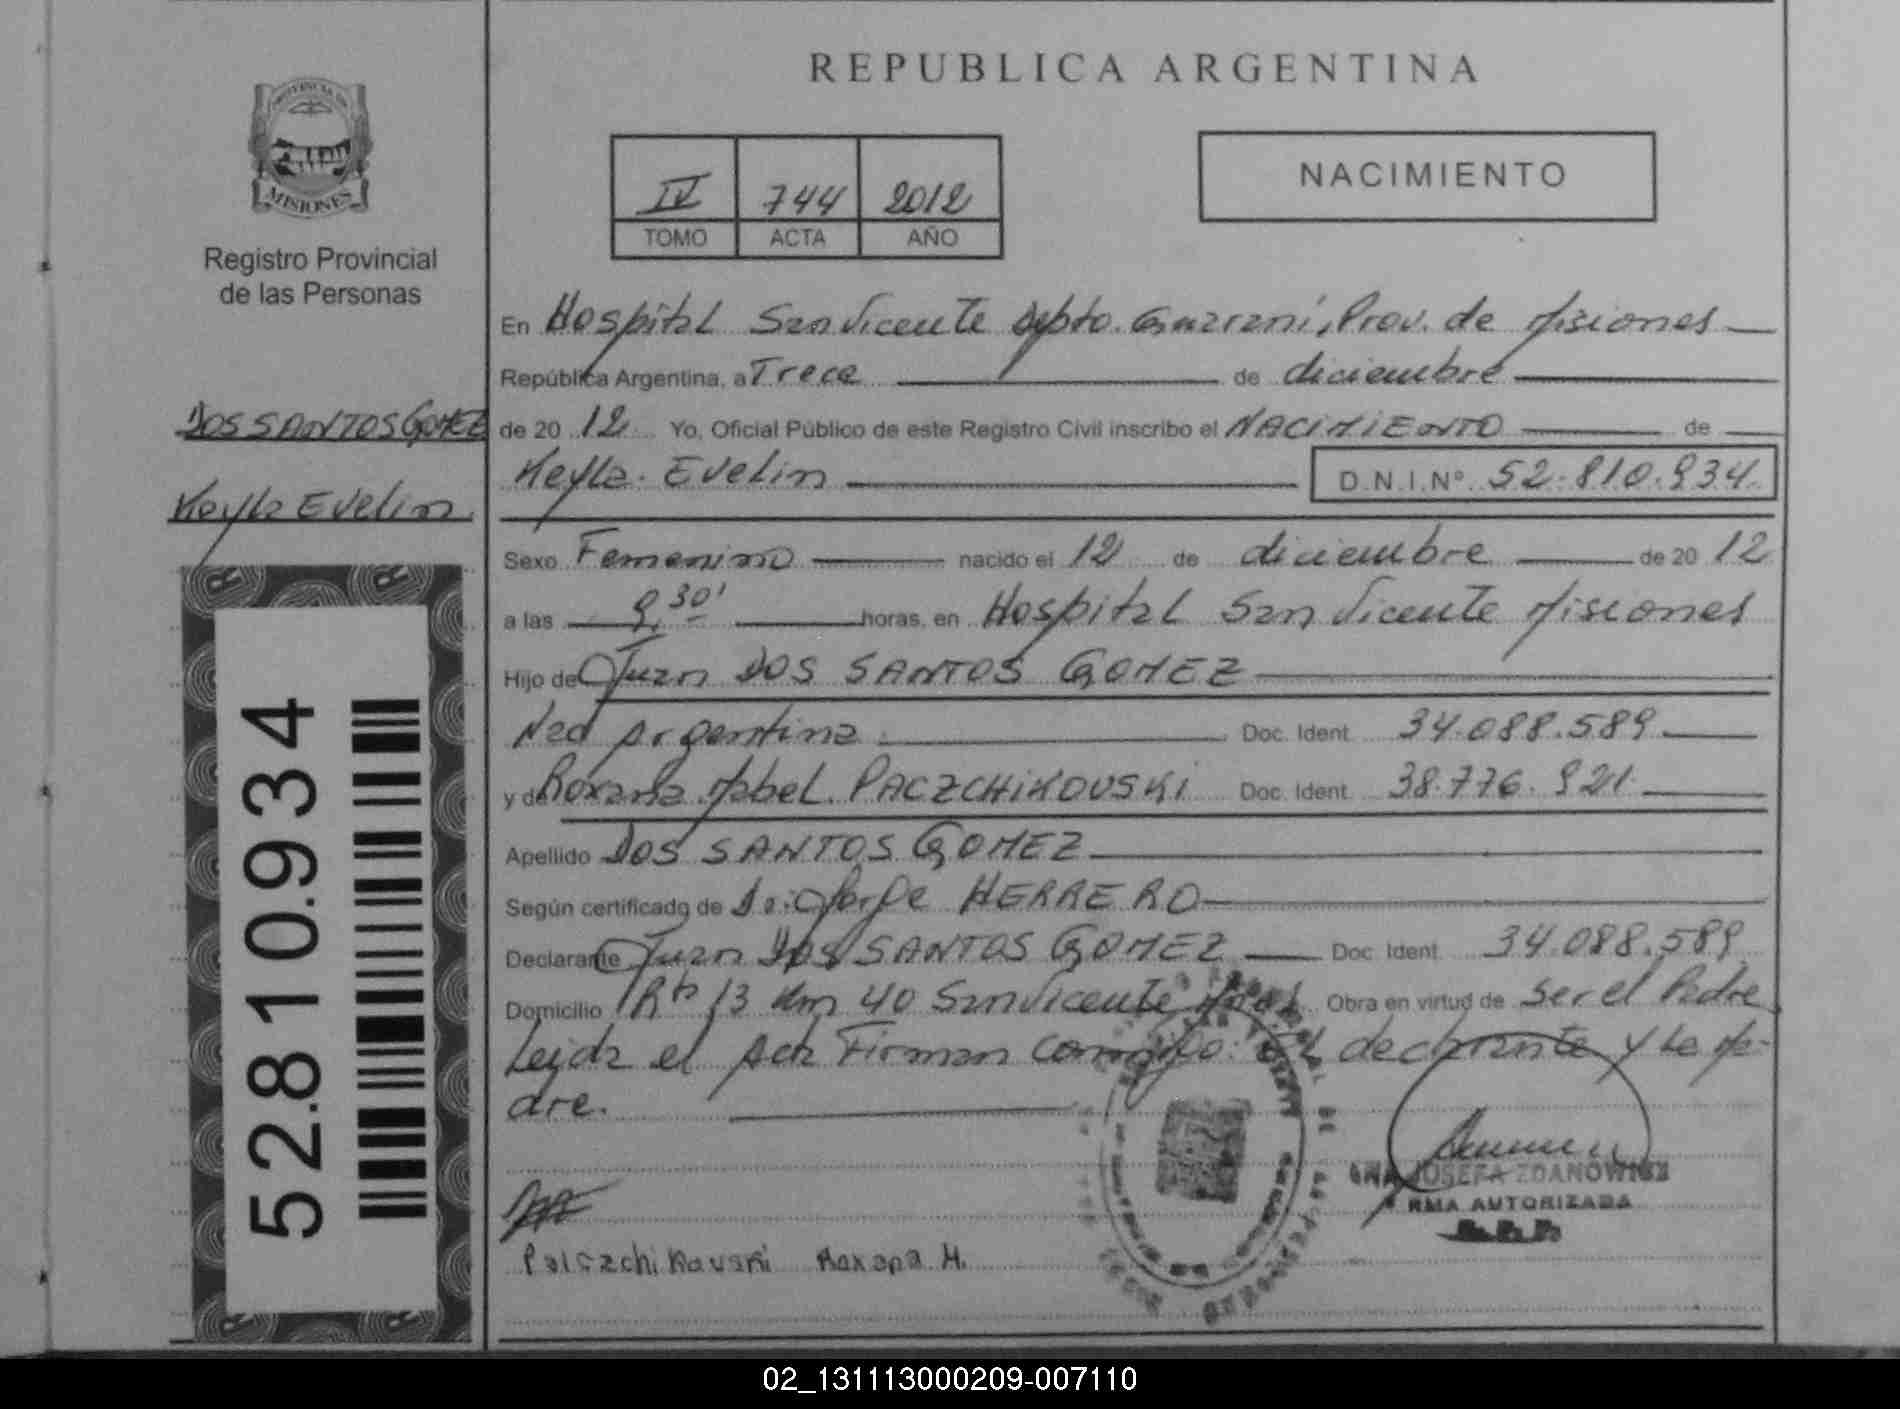 REPUBLICA ARGENTINA
PROVINCIA DE
MISIONES
Registro Provincial
de las Personas
IV 744 2012
TOMO ACTA AÑO
NACIMIENTO
DOS SANTOS GOMEZ
Keyla Evelin
52.810.934
En Hospital San Vicente Dpto. Guaraní, Prov. de Misiones
República Argentina, a Trece de diciembre
de 20 12 Yo, Oficial Público de este Registro Civil inscribo el NACIMIENTO de
Keyla Evelin D.N.I.Nº 52.810.934
Sexo Femenino nacido el 12 de diciembre de 20 12
a las 9,30' horas, en Hospital San Vicente Misiones
Hijo de Juan DOS SANTOS GOMEZ
Nac Argentina Doc. Ident. 34.088.589
y de Roxana Mabel PACZCHIKOUSKI Doc. Ident. 38.776.921
Apellido DOS SANTOS GOMEZ
Según certificado de Dr. Jorge HERRERO
Declarante Juan DOS SANTOS GOMEZ Doc. Ident. 34.088.589
Domicilio Rta 13 Km 40 San Vicente Obra en virtud de ser el Padre
Leida el Acta Firman Conmigo: El declarante y La Ma-
dre.
ANA JOSEFA ZDANOWICZ
FIRMA AUTORIZADA
Roxana M.
02_131113000209-007110